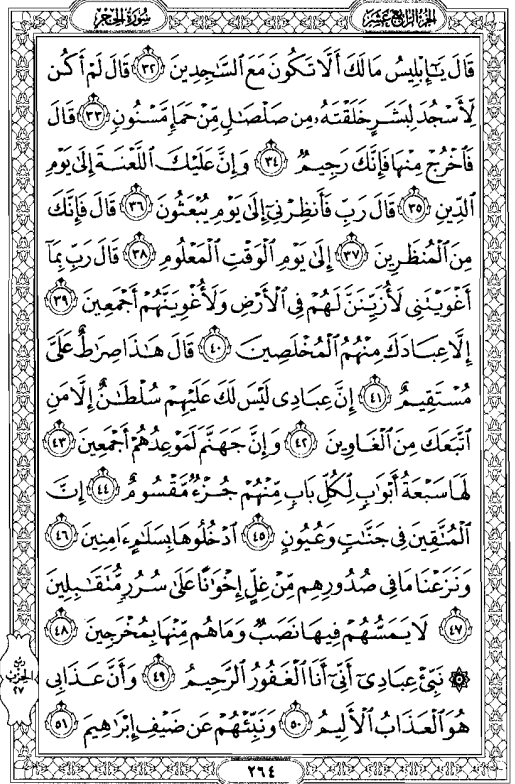 الجزء الرابع عشر
سورة الحجر
قَالَ يَٰٓإِبۡلِيسُ مَا لَكَ أَلَّا تَكُونَ مَعَ ٱلسَّٰجِدِينَ ٣٢ قَالَ لَمۡ أَكُن
لِّأَسۡجُدَ لِبَشَرٍ خَلَقۡتَهُۥ مِن صَلۡصَٰلٖ مِّنۡ حَمَإٖ مَّسۡنُونٖ ٣٣ قَالَ
فَٱخۡرُجۡ مِنۡهَا فَإِنَّكَ رَجِيمٞ ٣٤ وَإِنَّ عَلَيۡكَ ٱللَّعۡنَةَ إِلَىٰ يَوۡمِ
ٱلدِّينِ ٣٥ قَالَ رَبِّ فَأَنظِرۡنِيٓ إِلَىٰ يَوۡمِ يُبۡعَثُونَ ٣٦ قَالَ فَإِنَّكَ
مِنَ ٱلۡمُنظَرِينَ ٣٧ إِلَىٰ يَوۡمِ ٱلۡوَقۡتِ ٱلۡمَعۡلُومِ ٣٨ قَالَ رَبِّ بِمَآ
أَغۡوَيۡتَنِي لَأُزَيِّنَنَّ لَهُمۡ فِي ٱلۡأَرۡضِ وَلَأُغۡوِيَنَّهُمۡ أَجۡمَعِينَ ٣٩
إِلَّا عِبَادَكَ مِنۡهُمُ ٱلۡمُخۡلَصِينَ ٤٠ قَالَ هَٰذَا صِرَٰطٌ عَلَيَّ
مُسۡتَقِيمٌ ٤١ إِنَّ عِبَادِي لَيۡسَ لَكَ عَلَيۡهِمۡ سُلۡطَٰنٌ إِلَّا مَنِ
ٱتَّبَعَكَ مِنَ ٱلۡغَاوِينَ ٤٢ وَإِنَّ جَهَنَّمَ لَمَوۡعِدُهُمۡ أَجۡمَعِينَ ٤٣
لَهَا سَبۡعَةُ أَبۡوَٰبٖ لِّكُلِّ بَابٖ مِّنۡهُمۡ جُزۡءٞ مَّقۡسُومٌ ٤٤ إِنَّ
ٱلۡمُتَّقِينَ فِي جَنَّٰتٖ وَعُيُونٍ ٤٥ ٱدۡخُلُوهَا بِسَلَٰمٍ ءَامِنِينَ ٤٦
وَنَزَعۡنَا مَا فِي صُدُورِهِم مِّنۡ غِلٍّ إِخۡوَٰنًا عَلَىٰ سُرُرٖ مُّتَقَٰبِلِينَ
٤٧ لَا يَمَسُّهُمۡ فِيهَا نَصَبٞ وَمَا هُم مِّنۡهَا بِمُخۡرَجِينَ ٤٨
۞ نَبِّئۡ عِبَادِيٓ أَنِّيٓ أَنَا ٱلۡغَفُورُ ٱلرَّحِيمُ ٤٩ وَأَنَّ عَذَابِي
هُوَ ٱلۡعَذَابُ ٱلۡأَلِيمُ ٥٠ وَنَبِّئۡهُمۡ عَن ضَيۡفِ إِبۡرَٰهِيمَ ٥١
ربع
الحزب
٢٧
٢٦٤